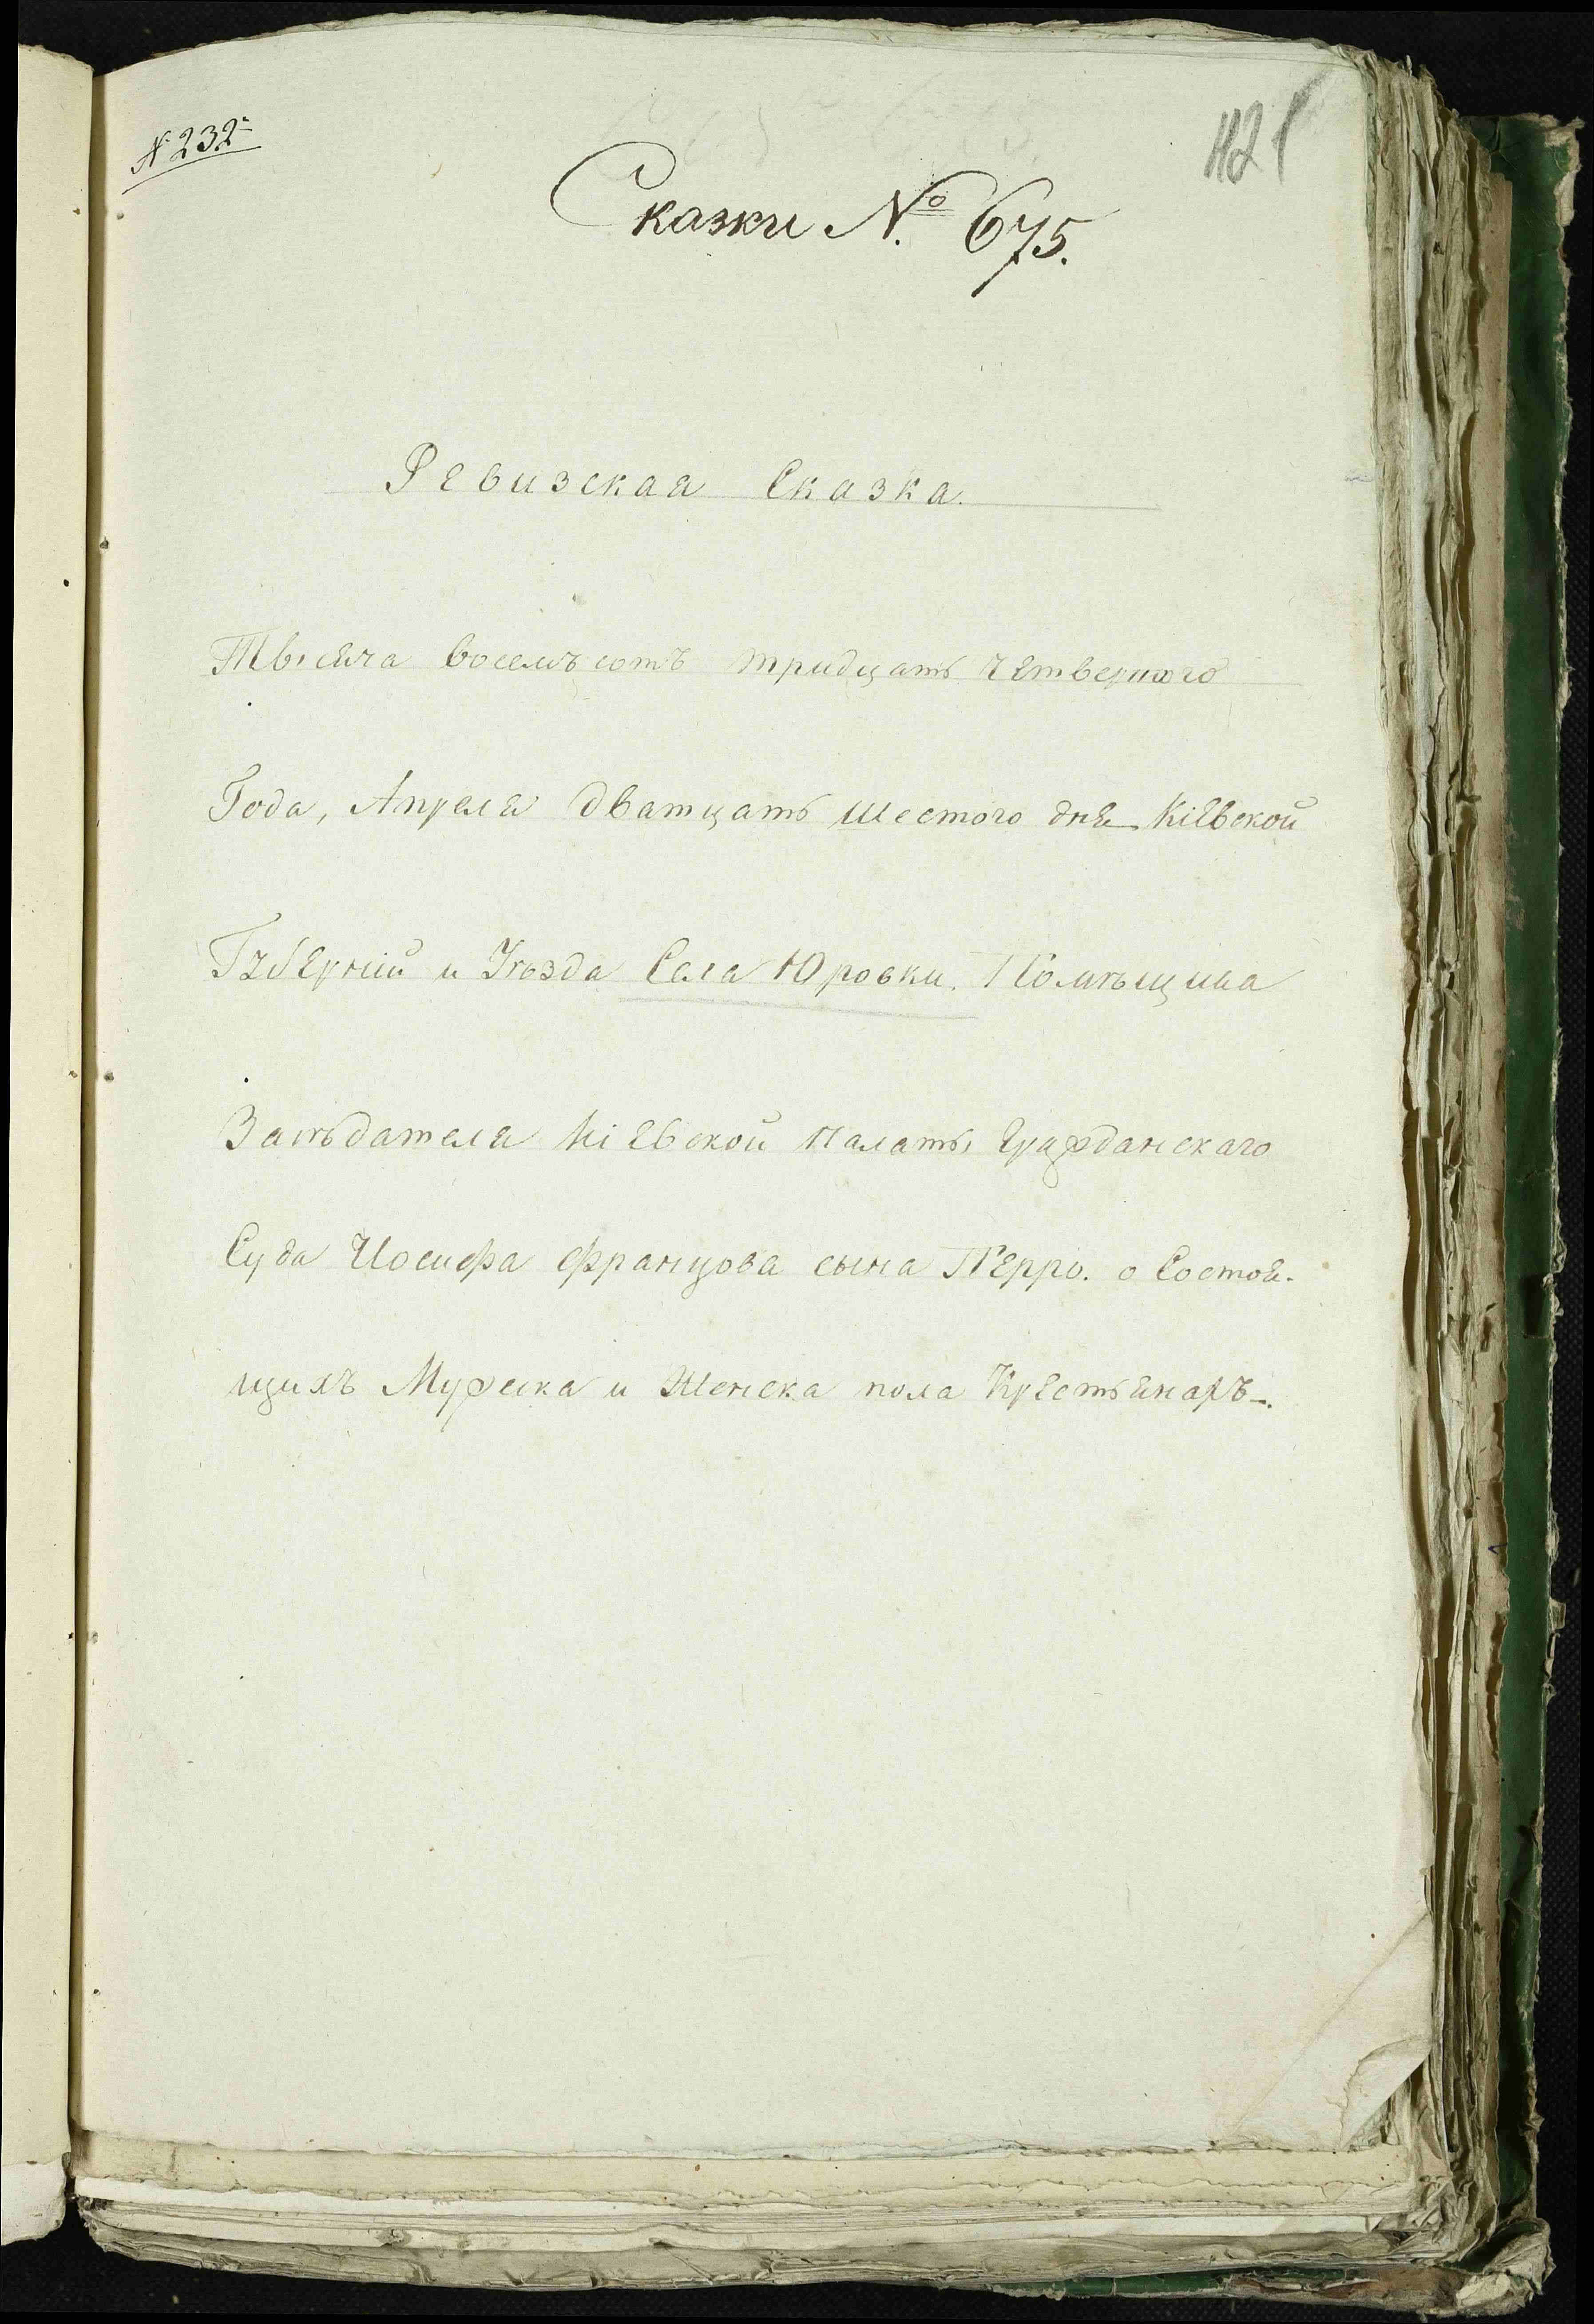 № 232
Сказки № 675.
Ревизская Сказка.
Тысяча восемъ сотъ тридцать четвертого
Года, Апреля дватцать шестого дня Кіевской
Губерніи и Уѣзда Села Юровки. Помѣщика
Засѣдателя Кіевской Палаты Гражданскаго
Суда Иосифа Францова сына Перро. о Состоя-
щихъ Мужеска и Женска пола Крестьянахъ.